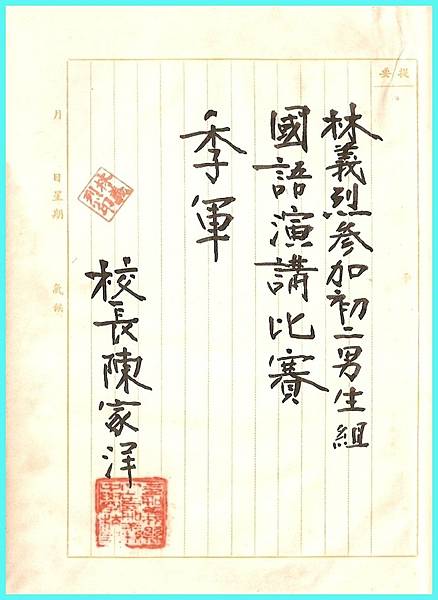 提要
林義烈參加初二男生組
國語演講比賽
季軍
校長陳家洋
月 日星期 氣候